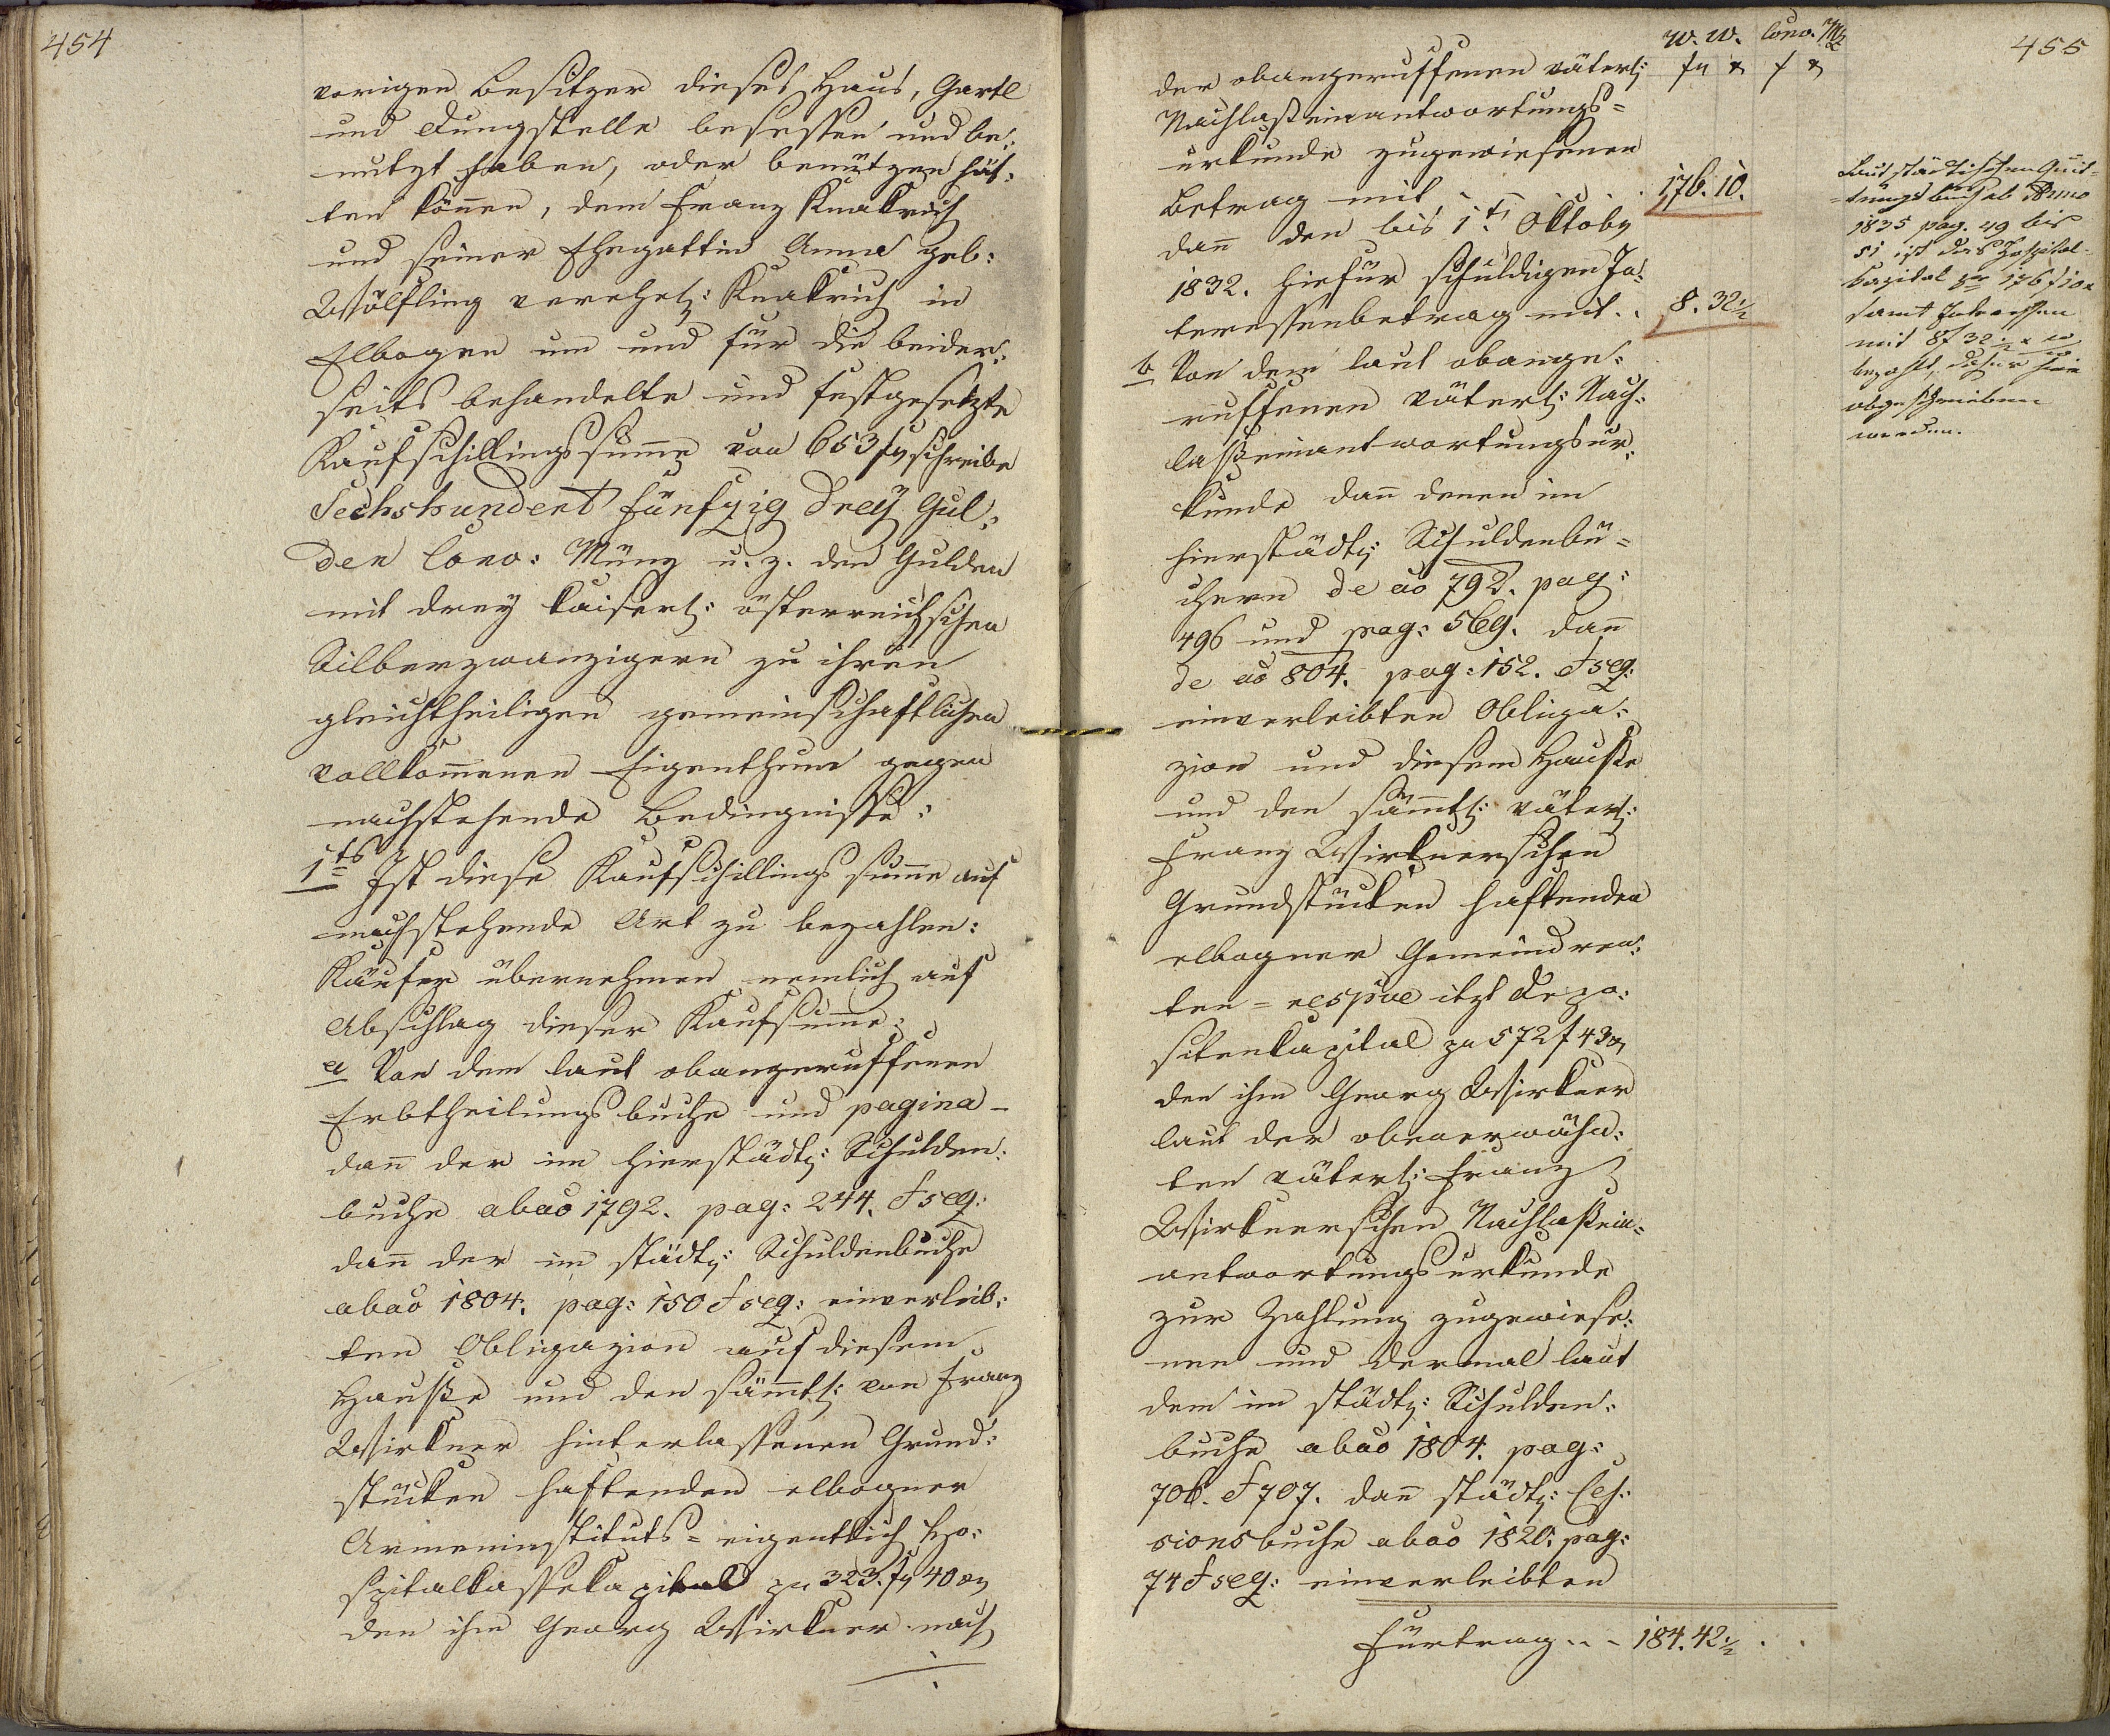 454
vorigen Besitzer dieses Haus, Gartl
und Dungstelle besessen und be:
nutzt haben, oder benützen hät:
ten können, dem Franz Knakrich
und seiner Ehegattin Anna geb:
Wölfling verehel: Knakrich in
Elbogen um und für die beider:
seits behandelte und festgesetzte
Kaufschillingssume von 653 f schreibe
Sechshundert fünfzig Drey Gul:
den Conv: Münz u. z. den Gulden
mit drey kaiserl: österreichschen
Silberzwanzigern zu ihren
gleichtheiligen gemeinschaftlichen
vollkomenen Eigenthum gegen
nachstehende Bedingnisse:
1ts Ist diese Kaufschillings sume auf
nachstehende Art zu bezahlen:
Käufer übernehmen nemlich auf
Abschlag dieser Kaufsume:
a Von dem laut obangeruffenen
Erbtheilungsbuche und pagina –
dan der im hierstädt: Schulden:
buche abao 1792. pag: 244. & seq:
dan der im städt: Schuldenbuche
abao 1804. pag: 150 & seq: einverleib:
ten Obligazion auf diesem
Hauße und den sämtl: von Franz
Wirkner hinterlassenen Grund:
stücken haftenden elbogner
Armeninstituts = eigentlich Ho:
spitalkassekapital zu 323 f 40 x
den ihm Georg Wirkner nach
455
W. W. Conv. Mz
f x f x
der obangeruffenen väterl:
Nachlaßeinantwortungs=
urkunde zugewiesenen
Betrag mit . . . 176. 10.
dan den bis 1t Oktober
1832. hiefür schuldigen In:
teressenbetrag mit . . 8. 32 1/2
b Von dem laut obange:
ruffenen väterl: Nach:
laßeinantwortungsur:
kunde dan denen im
hierstädt: Schuldenbü=
chern de ao 792. pag:
496 und pag: 569. dan
de ao 804. pag: 152. & seq:
einverleibten Obliga:
zion und diesem Hauße
und den sämtl: väterl:
Franz Wirknerschen
Grundstücken haftenden
elbogner Gemeindren:
ten = respve itzt Depo:
sitenkapital zu 572 f 43 x
den ihm Georg Wirkner
laut der obenerwähn:
ten väterl: Franz
Wirknerschen Nachlaßein=
antwortungsurkunde
zur Zahlung zugewiese:
nen und dermal laut
dem im städt: Schulden:
buche abao 1804. pag:
706. & 707. dan städt: Ces:
sionsbuche abao 1820. pag:
74 & seq: einverleibten
Fürtrag . . . 184. 42 1/2 . .
Laut städtischen Quit=
=tungsbuch ab Anno
1835 pag. 49 bis
51 ist das Hospital-
Kapital pr 176 f 10 x
samt Interessen
mit 8 f 32 1/2 x W W
bezahlt, daher hier
abgeschrieben
worden.